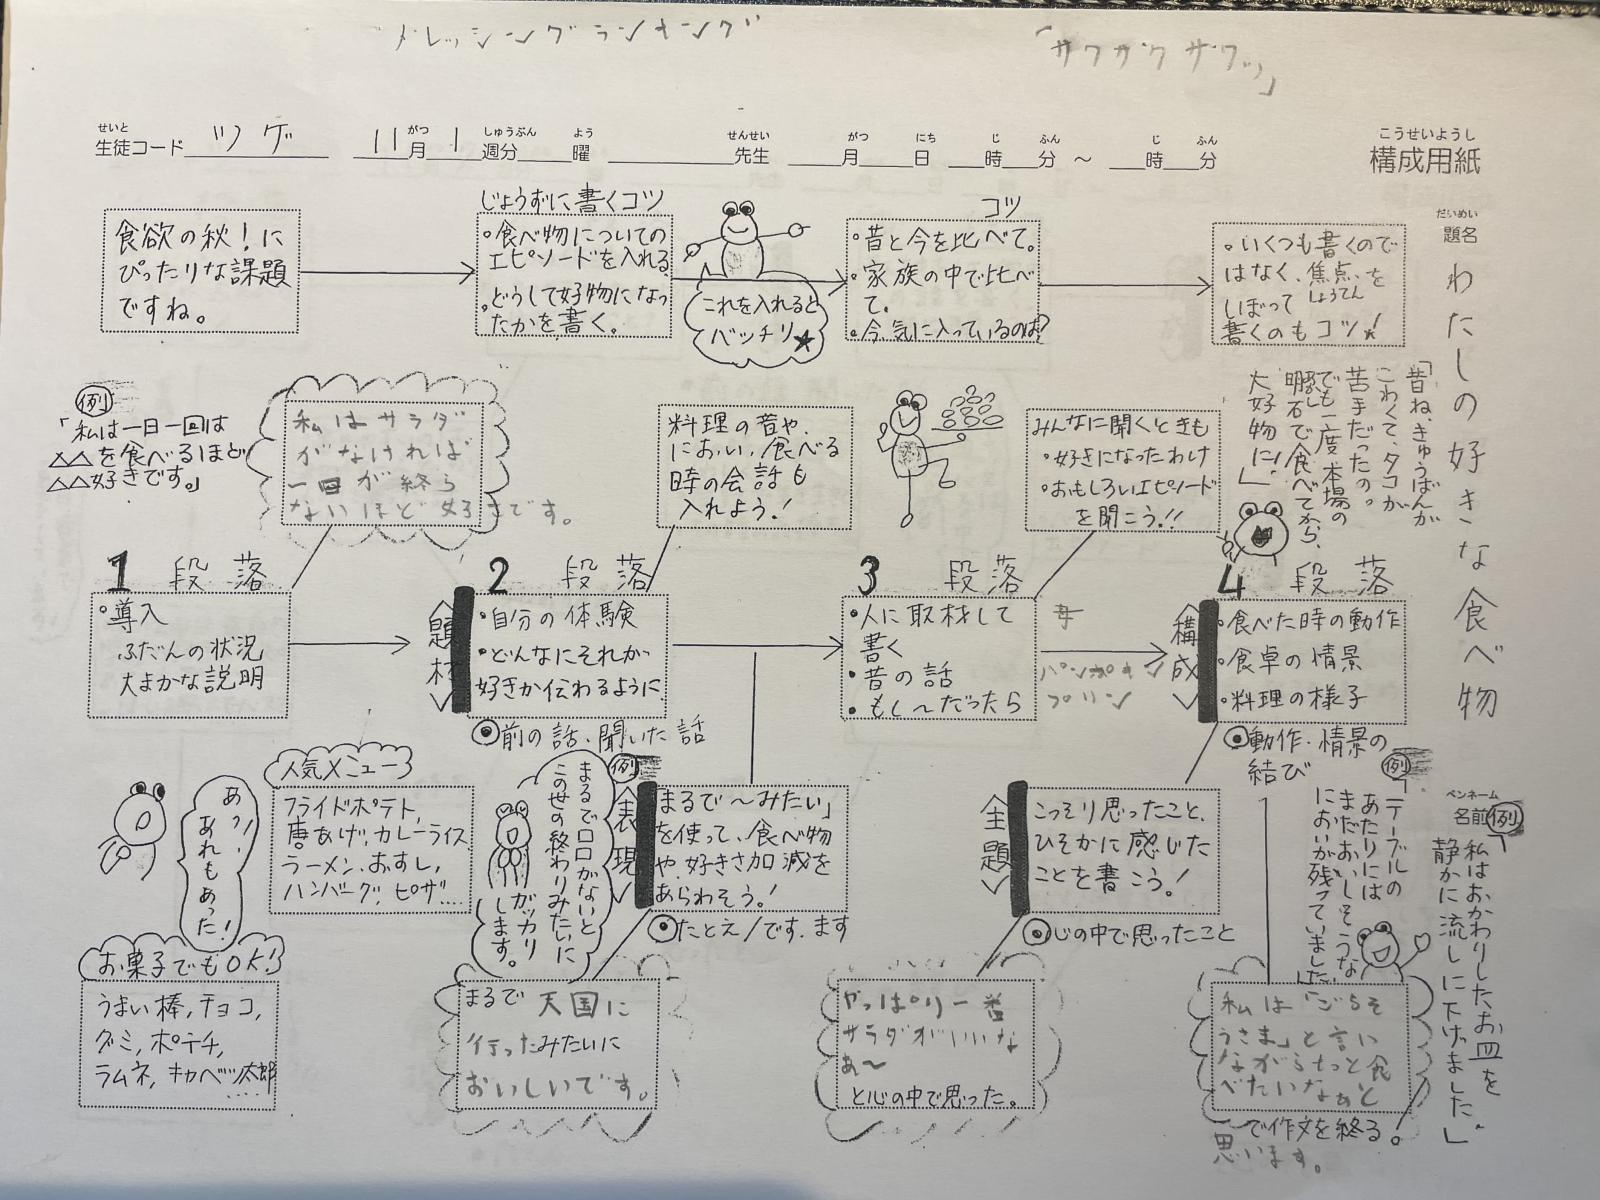 ドレッシングランキング
「サワガクサワッ」
せいと がつ しゅうぶん よう せんせい がつ にち じ ふん じ ふん
生徒コード ツゲ 11月1週分 曜 先生 月 日 時 分 ～ 時 分
こうせいようし
構成用紙
だいめい
題名
わたしの好きな食べ物
食欲の秋！に
ぴったりな課題
ですね。
じょうずに書くコツ
・食べ物についての
エピソードを入れる
・どうして好物になっ
たかを書く。
これを入れると
バッチリ★
コツ
・昔と今を比べて。
・家族の中で比べ
て。
・今、気に入っているのは？
・いくつも書くので
はなく、焦点を
しょうてん
しぼって
書くのもコツ！
「昔ね、きゅうばんが
こわくて、タコが
苦手だったの。
でも一度本場の
明石で食べてから、
大好物に！」
例
「私は一日一回は
△△を食べるほど
△△好きです。」
私はサラダ
がなければ
一日が終ら
ないほど好きです。
料理の音や、
におい、食べる
時の会話も
入れよう！
みんなに聞くときも
・好きになったわけ
・おもしろいエピソード
を聞こう!!
1 段落
・導入
ふだんの状況
大まかな説明
2 段落
〈題材〉
・自分の体験
・どんなにそれが
好きか伝わるように
◎前の話、聞いた話
3 段落
・人に取材して
書く
・昔の話
・もし〜だったら
母
プリン
4 段落
〈構成〉
・食べた時の動作
・食卓の情景
・料理の様子
◎動作・情景の
結び
あっ！
あれもあった！
人気メニュー
フライドポテト、
唐あげ、カレーライス
ラーメン、おすし、
ハンバーグ、ピザ....
お菓子でもOK!
うまい棒、チョコ、
グミ、ポテチ、
ラムネ、キャベツ太郎
.....
例
まるで口口がないと
この世の終わりみたいに
ガッカリ
します。
〈表現〉
「まるで〜みたい」
を使って、食べ物
や、好きさ加減を
あらわそう！
◎たとえ/です、ます
まるで天国に
行ったみたいに
おいしいです。
〈主題〉
こっそり思ったこと、
ひそかに感じた
ことを書こう！
◎心の中で思ったこと
やっぱり一番
サラダがいいな
あ〜
と心の中で思った。
例
「テーブルの
あたりには
まだおいしそうな
においが残っていました」
ペンネーム
名前
例
「私はおかわりしたお皿を
静かに流しに下げました。」
私は「ごちそ
うさま」と言い
ながらもっと食
べたいなぁと
思います。
で作文を終る。